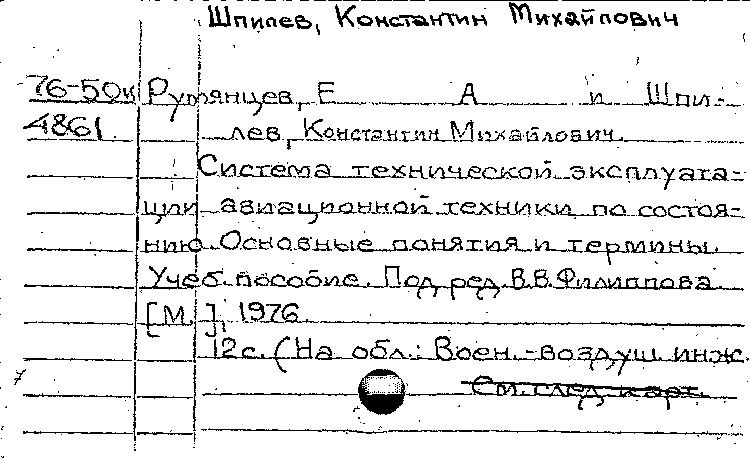 Шпилев, Константин Михайлович
76-50к Румянцев, Е А и Шпи-
4861 лев, Константин Михайлович.
Система технической эксплуата-
ции авиационной техники по состоя-
нию. Основные понятия и термины.
Учеб. пособие. Под ред. В.В. Филиппова.
[М.], 1976.
12 с. (На обл.: Воен.-воздуш. инж.
См. след. карт.
7